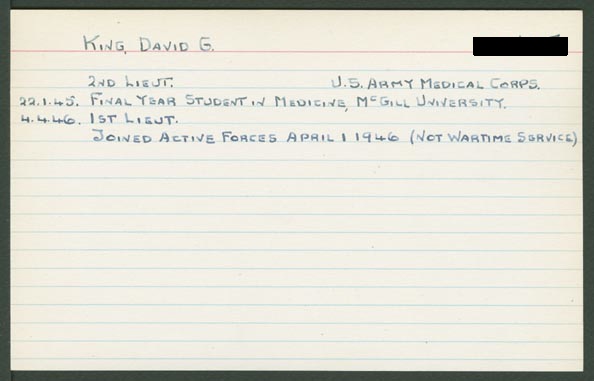 KING, DAVID G.
2ND LIEUT. U.S. ARMY MEDICAL CORPS.
22.1.45. FINAL YEAR STUDENT IN MEDICINE, McGILL UNIVERSITY.
4.4.46. 1ST LIEUT.
JOINED ACTIVE FORCES APRIL 1 1946 (NOT WARTIME SERVICE)